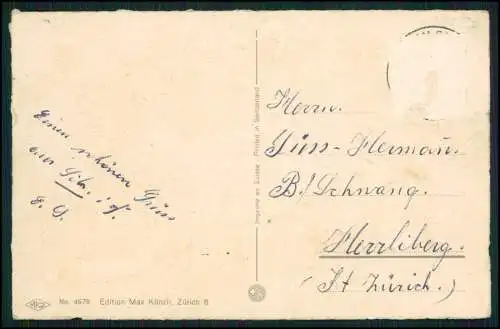 Einen schönen Gruss
aus
E. S.
Herrn.
Süss-Herman.
B/Schwang.
Herrliberg.
Kt Zürich.
Imprimé en Suisse - Printed in Switzerland
No. 4679 Edition Max Künzli, Zürich 6